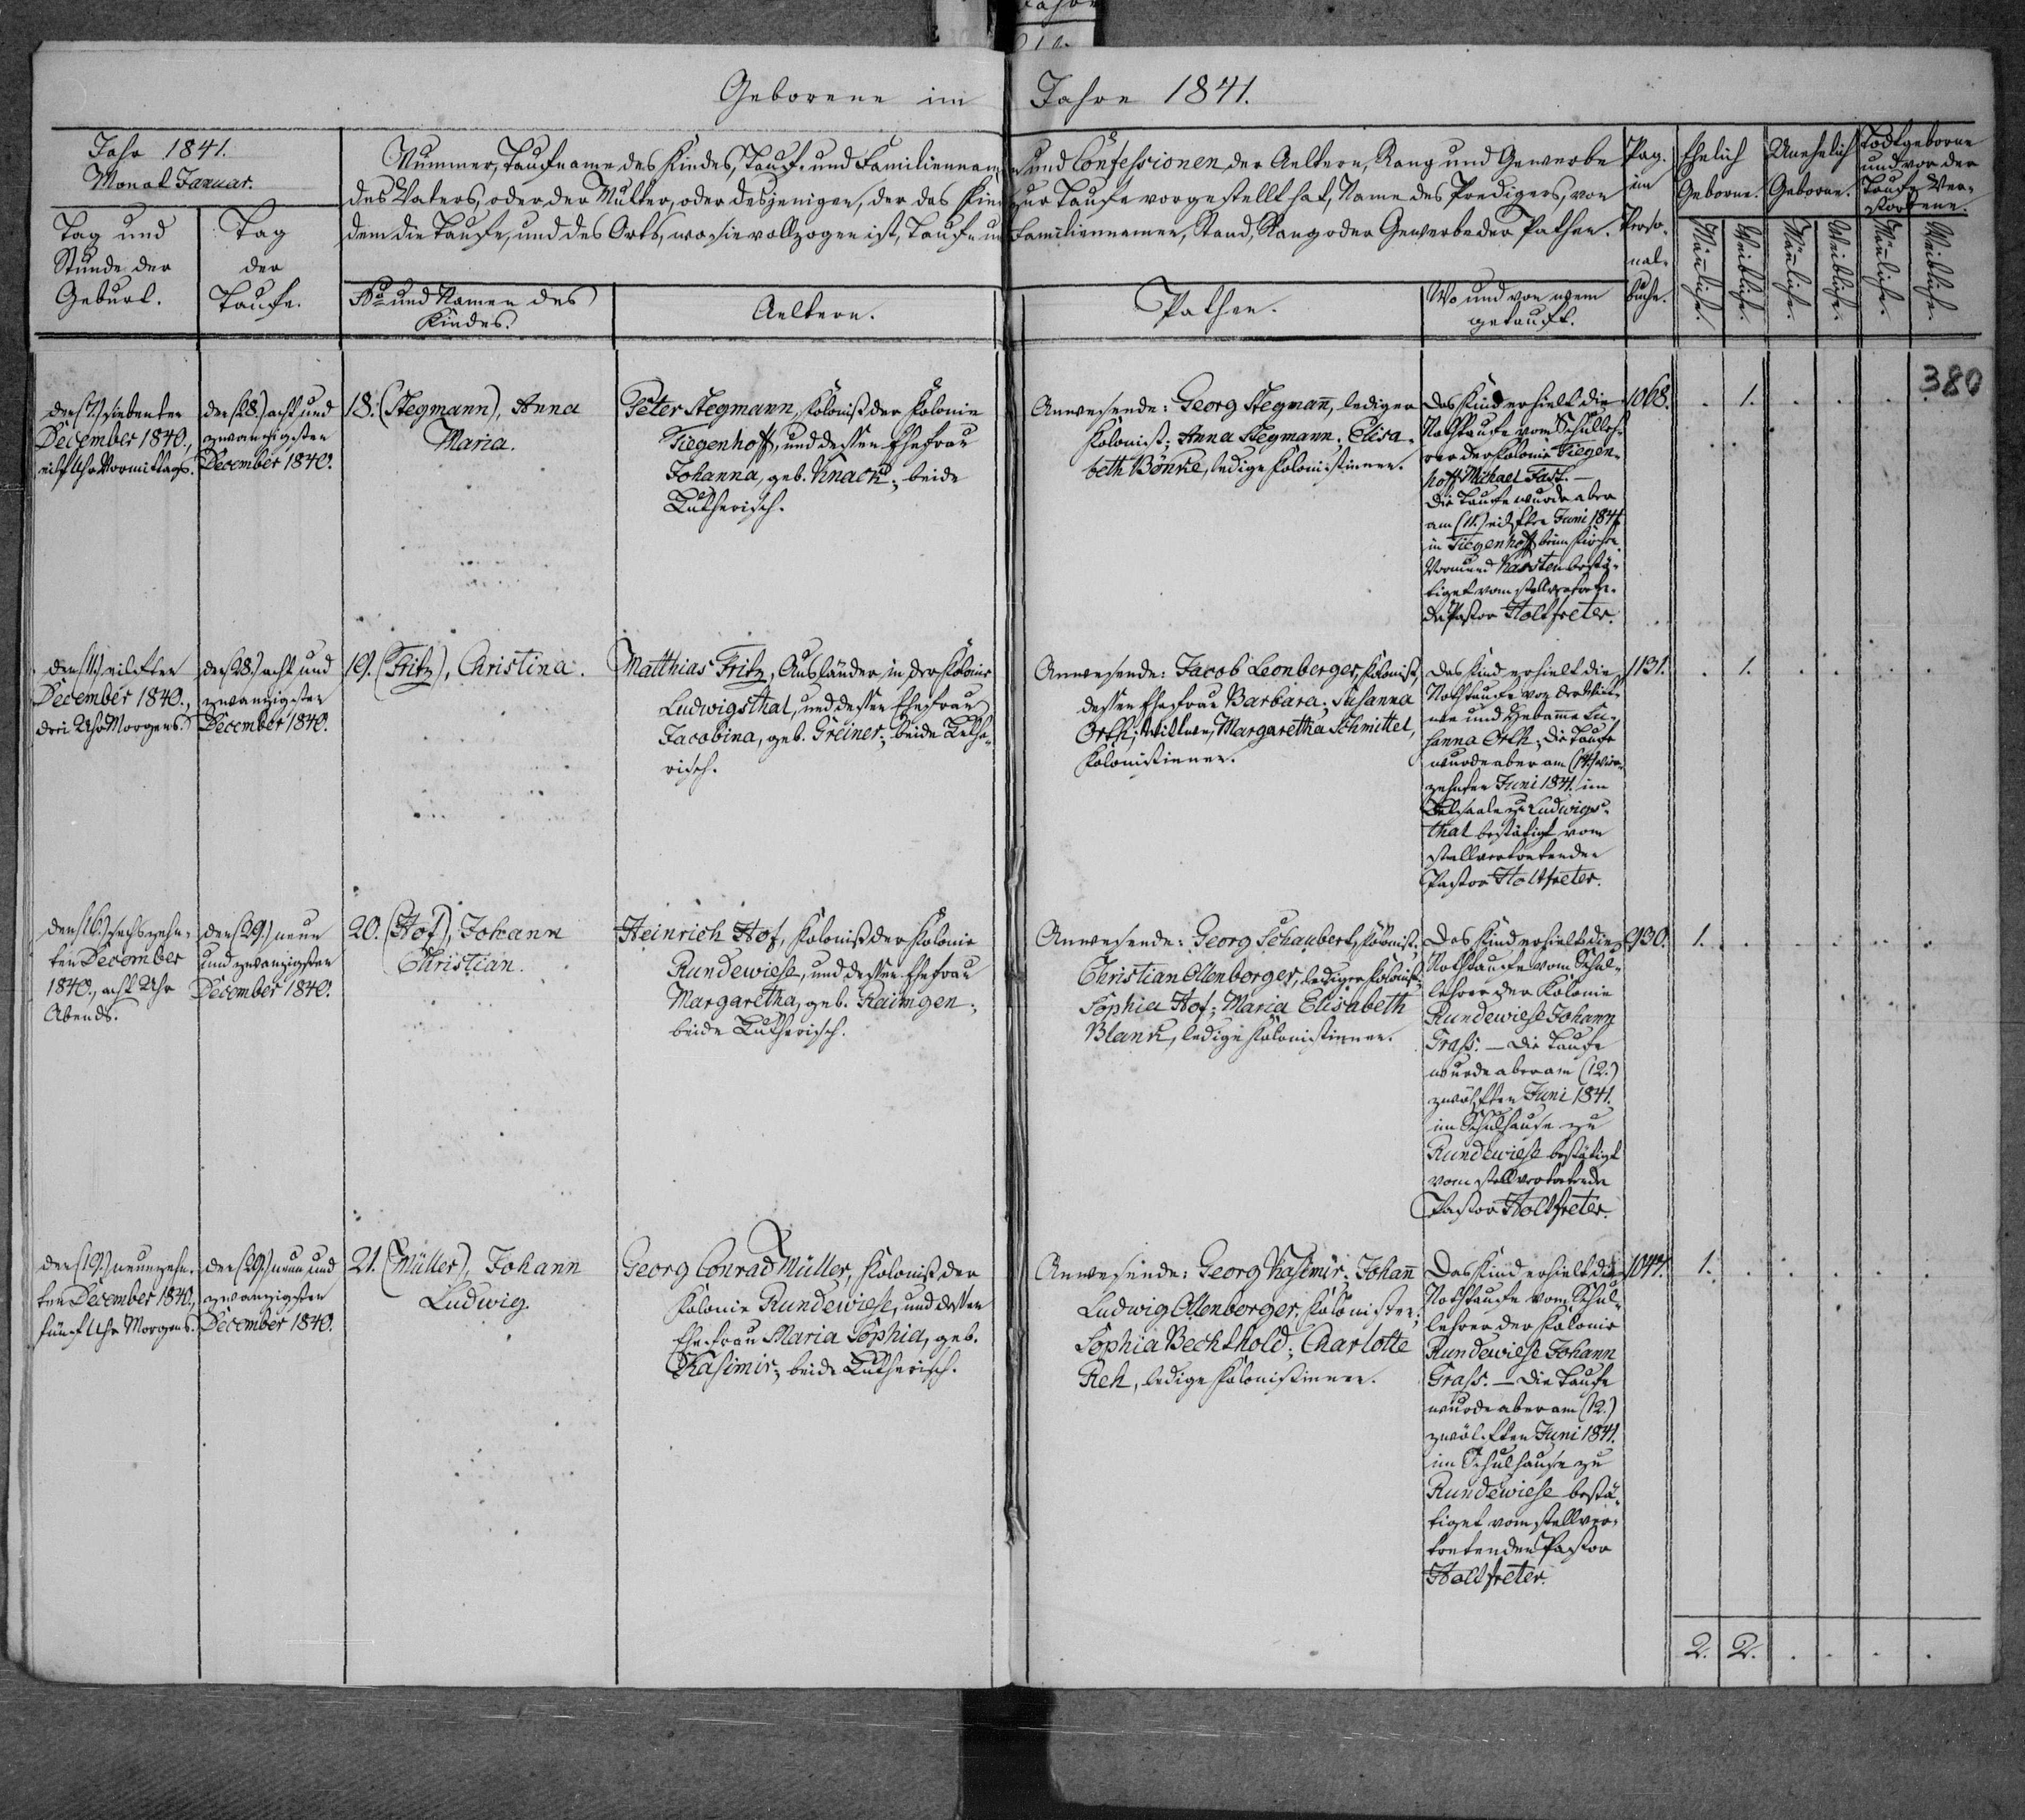 Geborene im Jahre 1841.
Jahr 1841.
Monat Januar.
Tag und
Stunde der
Geburt.
Tag
der
Taufe.
Nummer, Taufname des Kindes, Tauf- und Familiennamen und Confessionen der Aeltern, Rang und Gewerbe
des Vaters, oder der Mutter, oder desjenigen, der das Kind zur Taufe vorgestellt hat, Name des Predigers, von
dem die Taufe, und des Orts, wo sie vollzogen ist, Tauf- und Familiennamen, Stand, Rang oder Gewerbe der Pathen.
No und Namen des
Kindes.
Aeltern.
Pathen.
Wo und von wem
getauft.
Pag.
im
Perso-
nal-
buche.
Ehelich
Geborne.
Unehelich
Geborne.
Todtgeborne
und vor der
Taufe Ver-
storbene.
Männliche.
Weibliche.
Männliche.
Weibliche.
Männliche.
Weibliche.
380
den (7.) siebenten
December 1840.,
eilf Uhr Vormittags.
den (28.) acht und
zwanzigsten
December 1840.
18. (Stegmann), Anna
Maria.
Peter Stegmann, Kolonist der Kolonie
Tiegenhoff, und dessen Ehefrau
Johanna, geb. Knack; beide
Lutherisch.
Anwesende: Georg Stegmañ, lediger
Kolonist; Anna Stegmann; Elisa-
beth Bönke, ledige Kolonistinnen.
Das Kind erhielt die
Nothtaufe vom Schulleh-
rer der Kolonie Tiegen-
hoff Michael Fast. –
Die Taufe wurde aber
am (11.) eilften Juni 1841
in Tiegenhoff beim Kirchen-
Vormund Karsten bestä-
tiget vom stellvertreten-
den Pastor Holtfreter.
1068. . 1. . . . .
den (11.) eilften
December 1840.,
drei Uhr Morgens.
den (28.) acht und
zwanzigsten
December 1840.
19. (Fritz), Christina.
Matthias Fritz, Ausländer in der Kolonie
Ludwigsthal, und dessen Ehefrau
Jacobina, geb. Greiner; beide Luthe-
risch.
Anwesende: Jacob Leonberger, Kolonist,
dessen Ehefrau Barbara; Susanna
Orth, Wittwe; Margaretha Schmittel,
Kolonistinnen.
Das Kind erhielt die
Nothtaufe von der Witt-
we und Hebamme Su-
sanna Orth; die Taufe
wurde aber am (14.) vier-
zehnten Juni 1841. im
Betsaale zu Ludwigs-
thal bestätigt vom
stellvertretenden
Pastor Holtfreter.
1131. . 1. . . . .
den (16.) sechszehn-
ten December
1840., acht Uhr
Abends.
den (29.) neun
und zwanzigsten
December 1840.
20. (Hof), Johann
Christian.
Heinrich Hof, Kolonist der Kolonie
Rundewiese, und dessen Ehefrau
Margaretha, geb. Raimgen;
beide Lutherisch.
Anwesende: Georg Schaubert, Kolonist;
Christian Ollenberger, lediger Kolonist;
Sophia Hof; Maria Elisabeth
Blank, ledige Kolonistinnen.
Das Kind erhielt die
Nothtaufe vom Schul-
lehrer der Kolonie
Rundewiese Johann
Grass. – Die Taufe
wurde aber am (12.)
zwölften Juni 1841.
im Schulhause zu
Rundewiese bestätigt
vom stellvertretenden
Pastor Holtfreter.
930. 1. . . . . .
den (19.) neunzehn-
ten December 1840.,
fünf Uhr Morgens.
den (29.) neun und
zwanzigsten
December 1840.
21. (Müller), Johann
Ludwig.
Georg Conrad Müller, Kolonist der
Kolonie Rundewiese, und dessen
Ehefrau Maria Sophia, geb.
Kasimir; beide Lutherisch.
Anwesende: Georg Kasimir; Johañ
Ludwig Ollenberger, Kolonisten;
Sophia Bechthold; Charlotte
Reh, ledige Kolonistinnen.
Das Kind erhielt die
Nothtaufe vom Schul-
lehrer der Kolonie
Rundewiese Johann
Grass. – Die Taufe
wurde aber am (12.)
zwölften Juni 1841.
im Schulhause zu
Rundewiese bestä-
tiget vom stellver-
tretenden Pastor
Holtfreter.
1044. 1. . . . . .
2. 2. . . . .